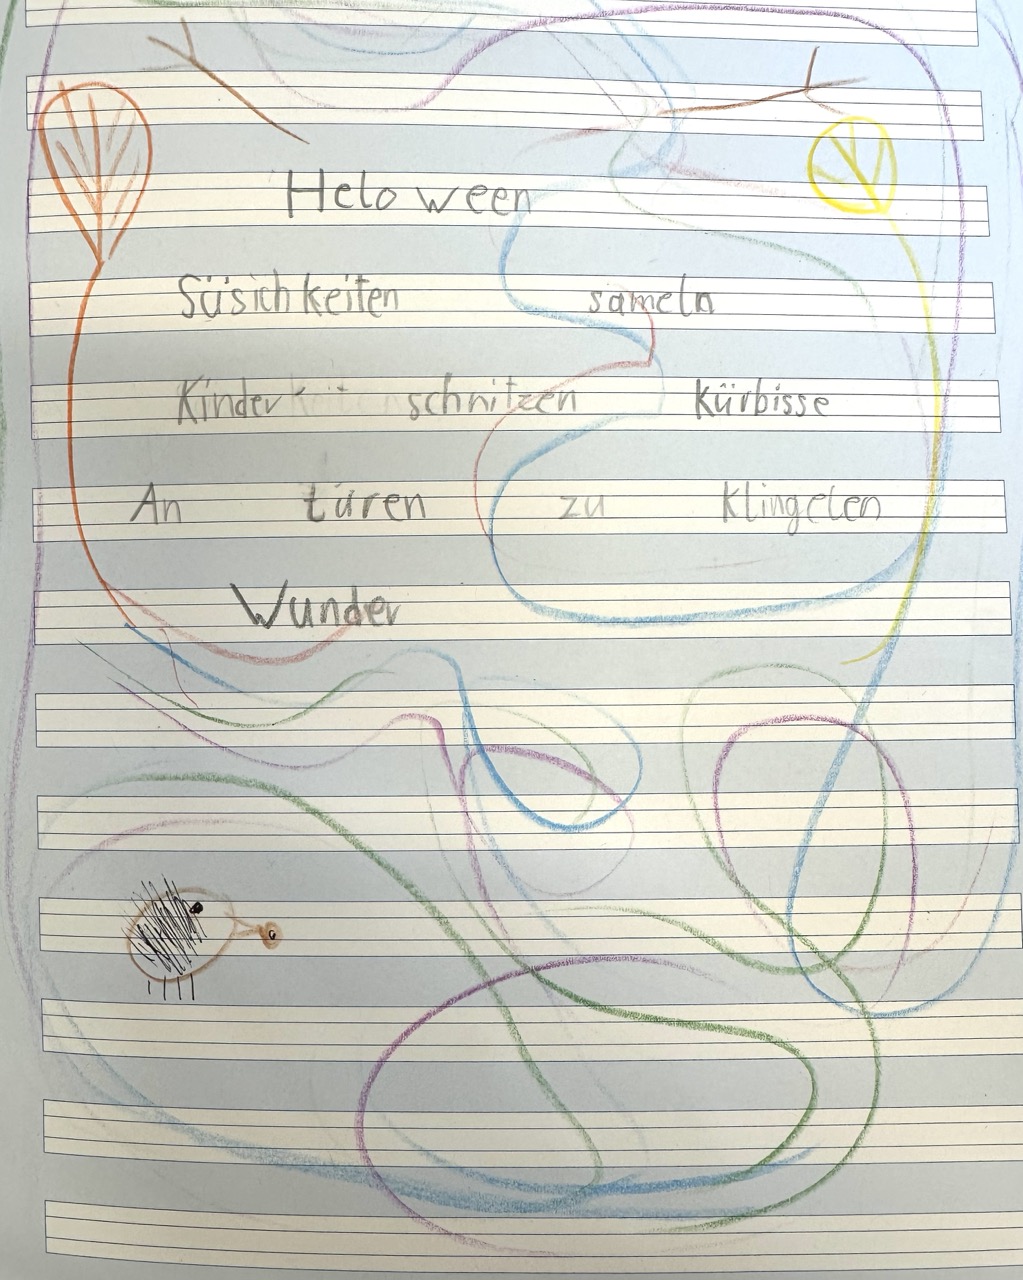 Heloween
Süsichkeiten sameln
Kinder schnitzen kürbisse
An türen zu klingelen
Wunder